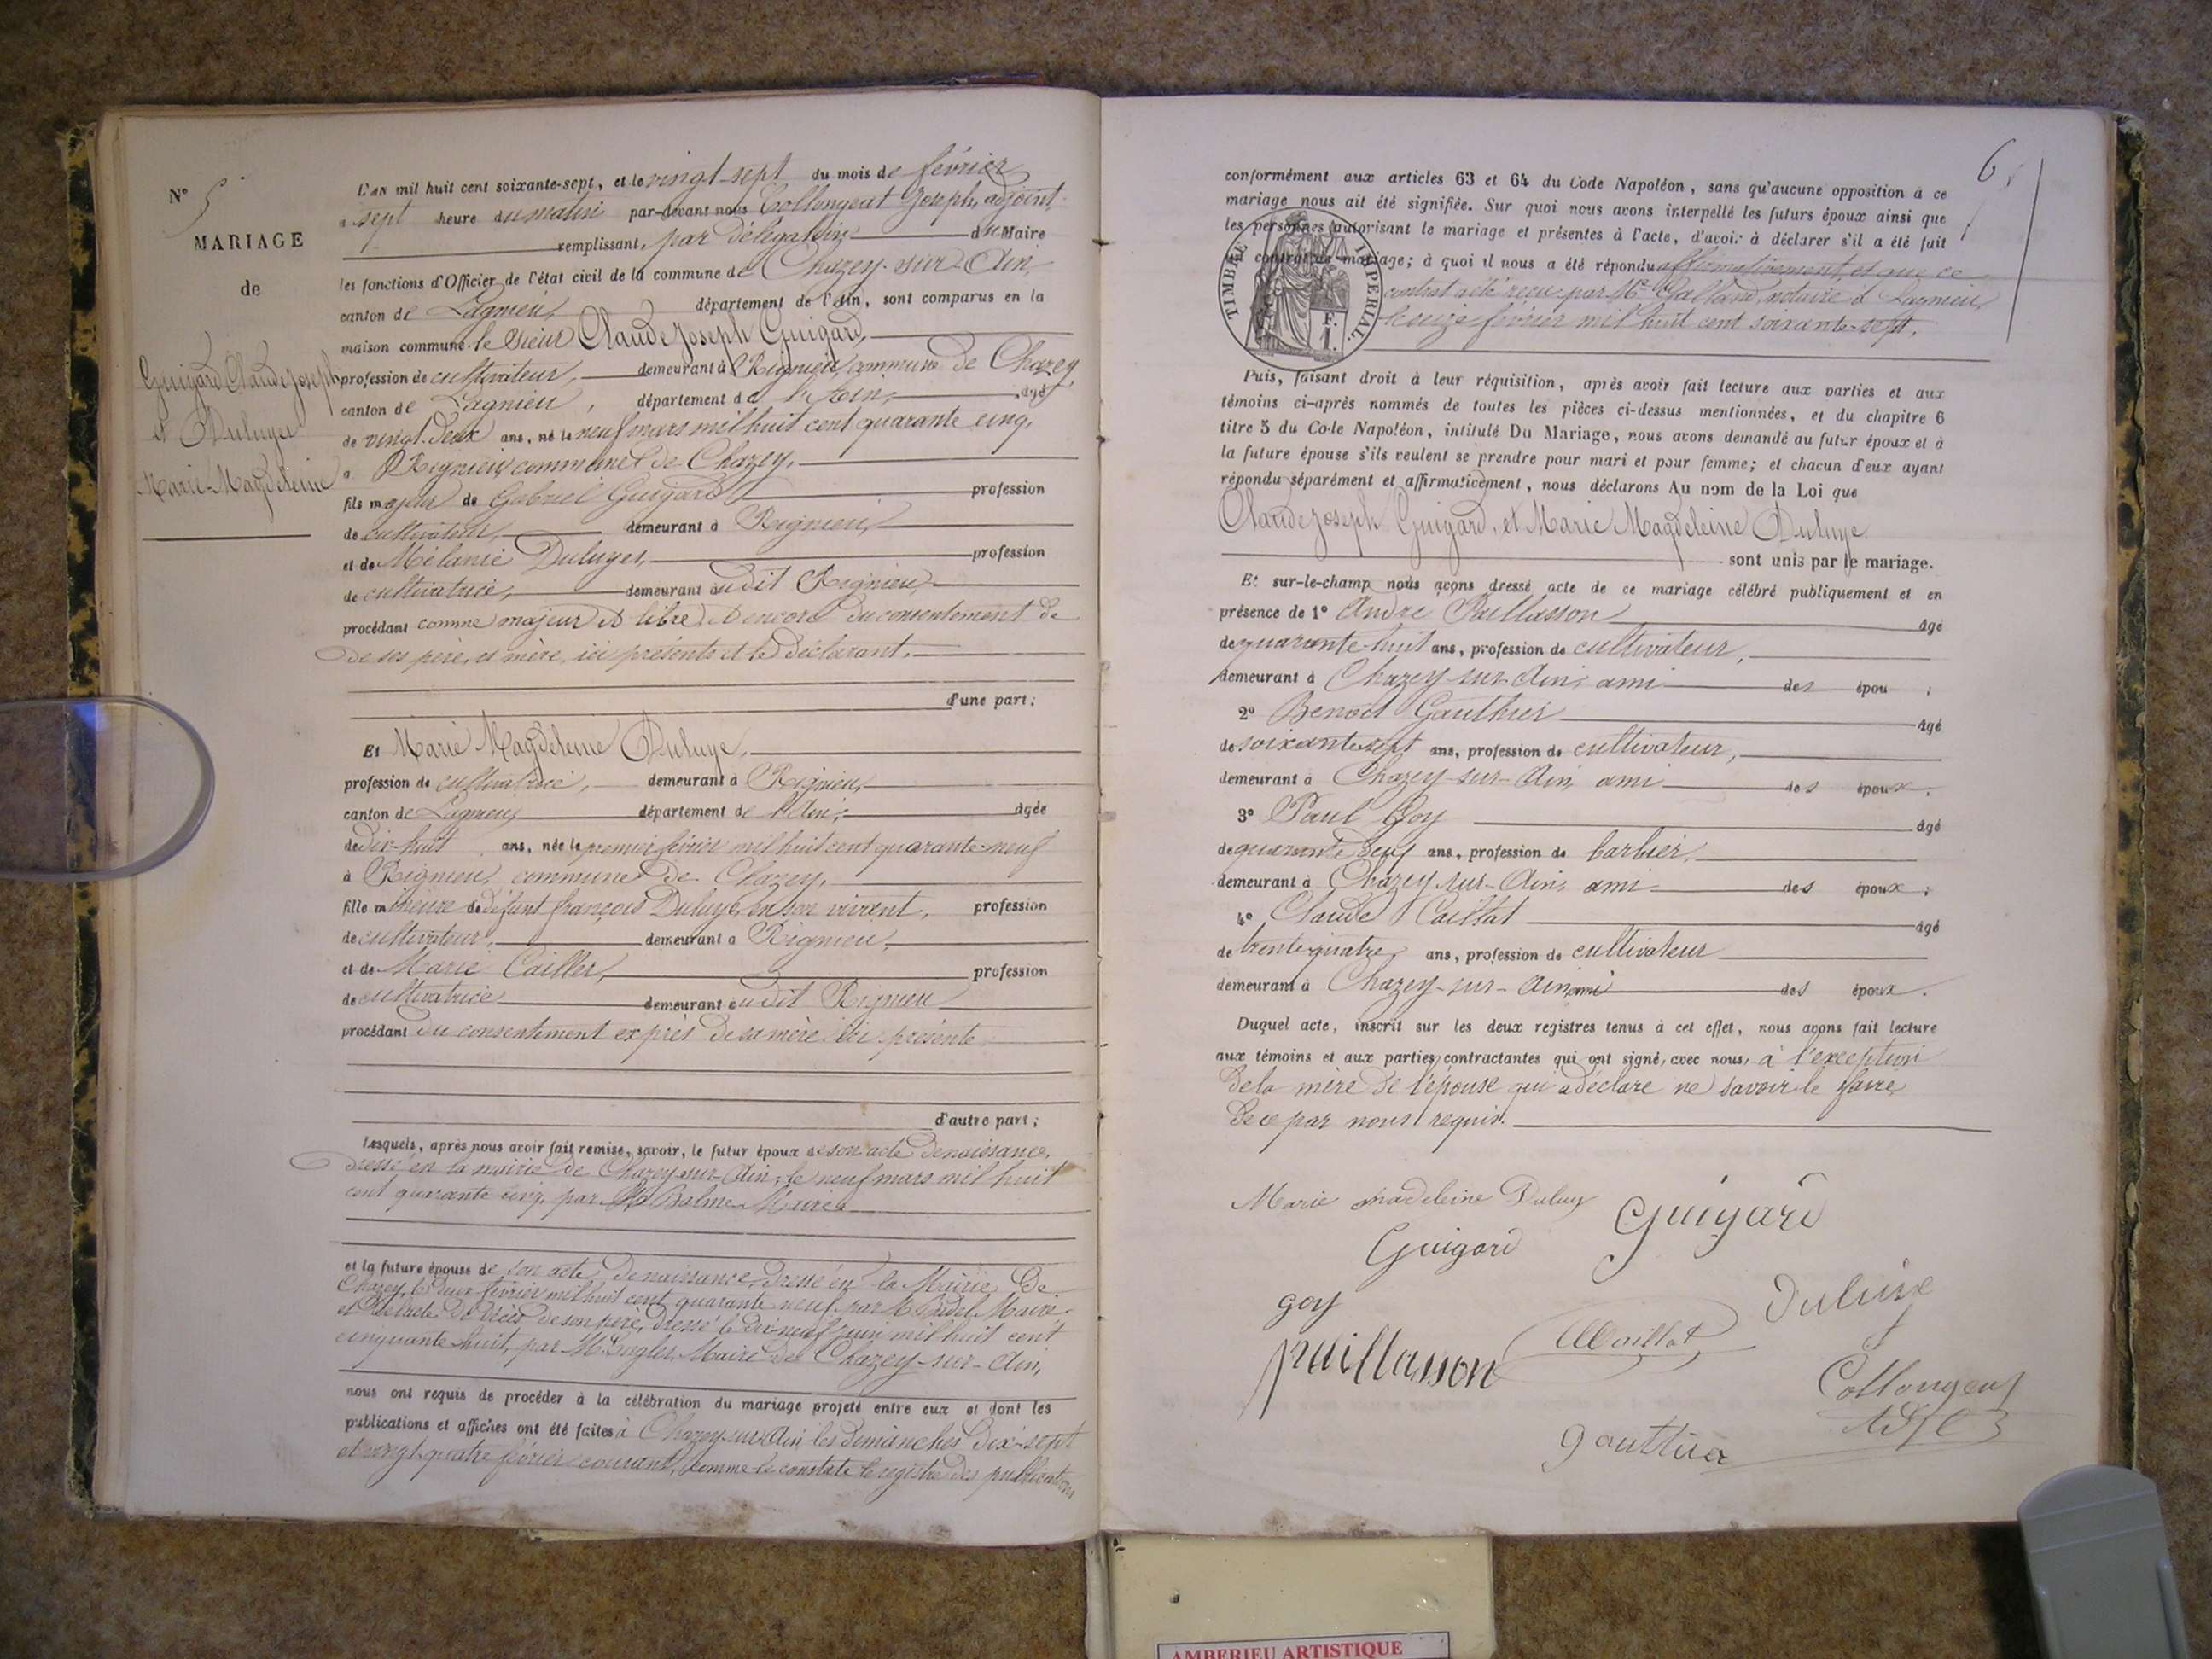 N° 5
MARIAGE
de
Guigard Claude Joseph
et Duluye
Marie-Magdeleine
L'AN mil huit cent soixante-sept, et le vingt-sept du mois de février
a sept heure du matin par-devant nous Collongeat Joseph, adjoint
remplissant, par délégation du Maire
les fonctions d'Officier de l'état civil de la commune de Chazey-sur-Ain
canton de Lagnieu département de l'Ain, sont comparus en la
maison commune le sieur Claude Joseph Guigard,
profession de cultivateur, demeurant à Rignieu commune de Chazey
canton de Lagnieu, département de l'Ain, âgé
de vingt-deux ans, né le neuf mars mil huit cent quarante cinq,
a Rignieu commune de Chazey,
fils majeur de Gabriel Guigard profession
de cultivateur, demeurant à Rignieu,
et de Mélanie Duluye, profession
de cultivatrice, demeurant audit Rignieu,
procédant comme majeur et libre et encore du consentement de
de ses père, et mère, ici présents et le déclarant.
d'une part;
Et Marie Magdeleine Duluye,
profession de cultivatrice, demeurant à Rignieu,
canton de Lagnieu département de l'Ain, âgée
de dix-huit ans, née le premier février mil huit cent quarante-neuf
à Rignieu, commune de Chazey,
fille mineure de défunt françois Duluye, en son vivant, profession
de cultivateur, demeurant a Rignieu,
et de Marie Cailler, profession
de cultivatrice demeurant audit Rignieu
procédant du consentement exprès de sa mère ici présente
d'autre part;
Lesquels, après nous avoir fait remise, savoir, le futur époux de son acte de naissance,
dressé en la mairie de Chazey-sur-Ain, le neuf mars mil huit
cent quarante cinq, par Balme Maire
et la future épouse de son acte de naissance, dressé en la Mairie de
Chazey, le deux février mil huit cent quarante neuf par M. Maire,
et de l'acte de décès de son père, dressé le dix-neuf juin mil huit cent
cinquante-huit, par M. Maire de Chazey-sur-Ain,
nous ont requis de procéder à la célébration du mariage projeté entre eux et dont les
publications et affiches ont été faites à Chazey-sur-Ain les dimanches dix-sept
et vingt-quatre février courant, comme le constate le registre des publications
6
conformément aux articles 63 et 64 du Code Napoléon, sans qu'aucune opposition à ce
mariage nous ait été signifiée. Sur quoi nous avons interpellé les futurs époux ainsi que
les personnes autorisant le mariage et présentes à l'acte, d'avoir à déclarer s'il a été fait
contrat de mariage; à quoi il nous a été répondu affirmativement, et que ce
contrat a été reçu par Me Galland, notaire à Lagnieu,
février mil huit cent soixante-sept.
TIMBRE IMPERIAL
1 F.
Puis, faisant droit à leur réquisition, après avoir fait lecture aux parties et aux
témoins ci-après nommés de toutes les pièces ci-dessus mentionnées, et du chapitre 6
titre 5 du Code Napoléon, intitulé Du Mariage, nous avons demandé au futur époux et à
la future épouse s'ils veulent se prendre pour mari et pour femme; et chacun d'eux ayant
répondu séparément et affirmativement, nous déclarons Au nom de la Loi que
Claude Joseph Guigard, et Marie Magdeleine Duluye
sont unis par le mariage.
Et sur-le-champ nous avons dressé acte de ce mariage célébré publiquement et en
présence de 1° André Paillasson âgé
de quarante-huit ans, profession de cultivateur,
demeurant à Chazey-sur-Ain, ami des épou ;
2° Benoît Gauthier âgé
de soixante-sept ans, profession de cultivateur,
demeurant à Chazey-sur-Ain, ami des époux.
3° Paul Goy âgé
de quarante deux ans, profession de barbier,
demeurant à Chazey-sur-Ain, ami des époux;
4° Claude Caillat âgé
de trente-quatre ans, profession de cultivateur
demeurant à Chazey-sur-Ain, ami des époux.
Duquel acte, inscrit sur les deux registres tenus à cet effet, nous avons fait lecture
aux témoins et aux parties contractantes qui ont signé, avec nous, à l'exception
de la mère de l'épouse qui a déclaré ne savoir le faire
de ce par nous requis.
Marie madeleine Duluy Guigard
Guigard
goy Duluise
paillasson Caillat
Collongeat
gauttier
AMBERIEU ARTISTIQUE